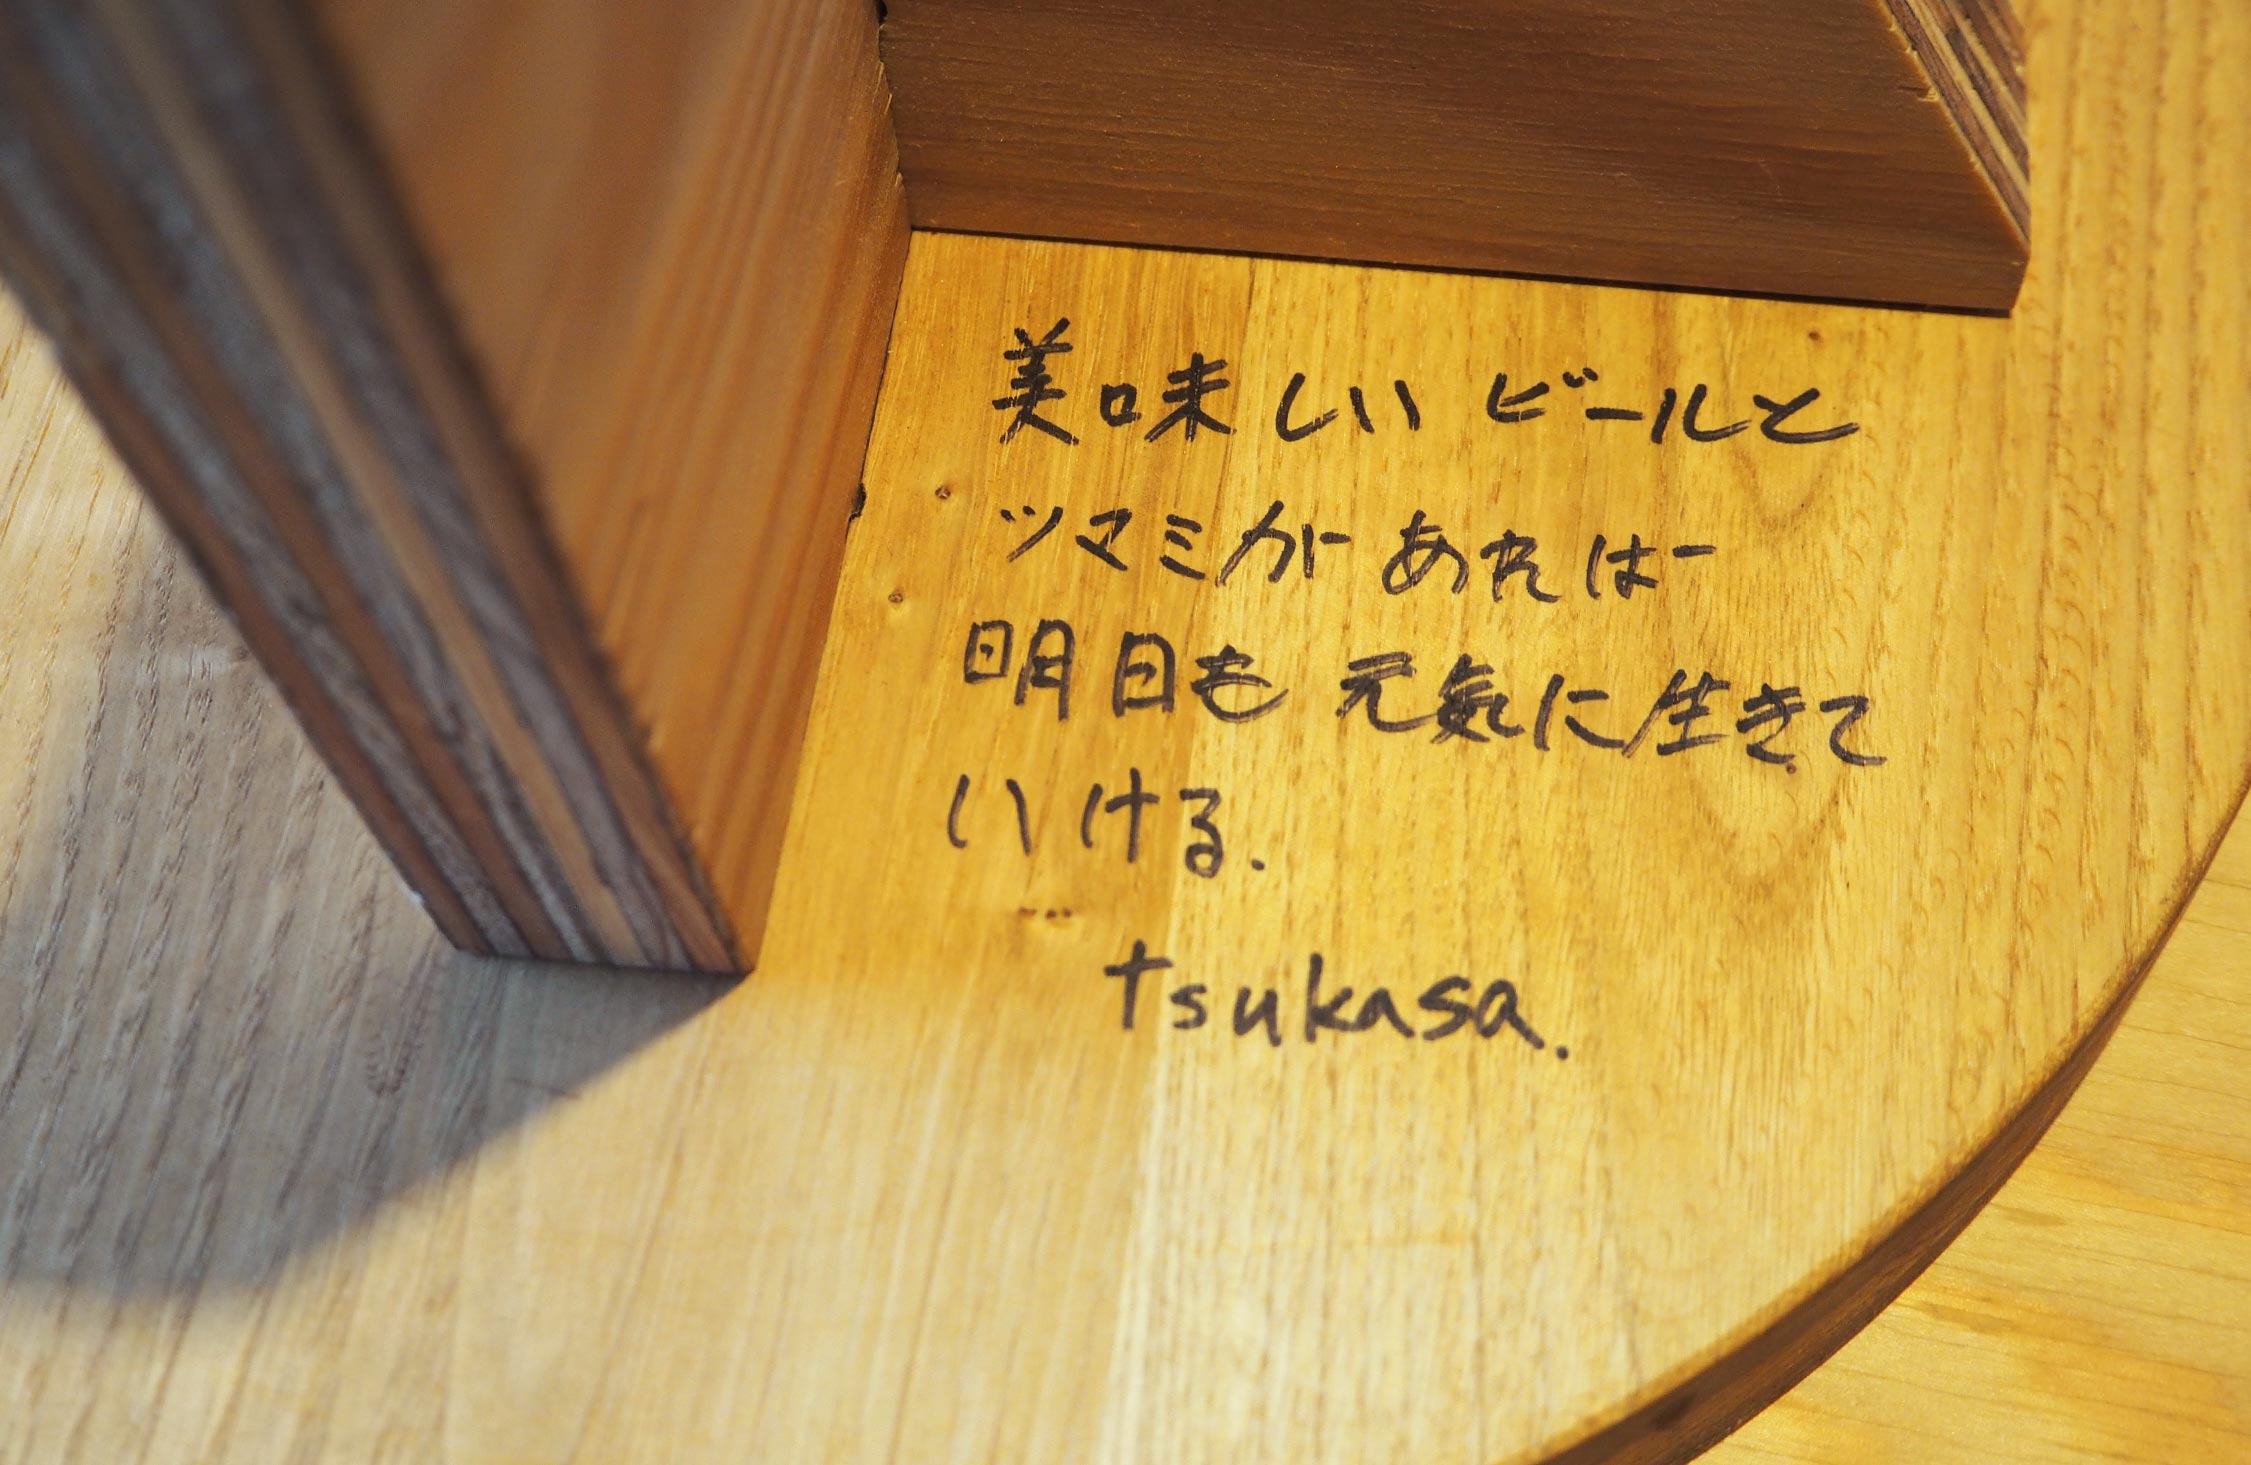 美味しいビールと
ツマミがあれば
明日も元気に生きて
いける.
tsukasa.